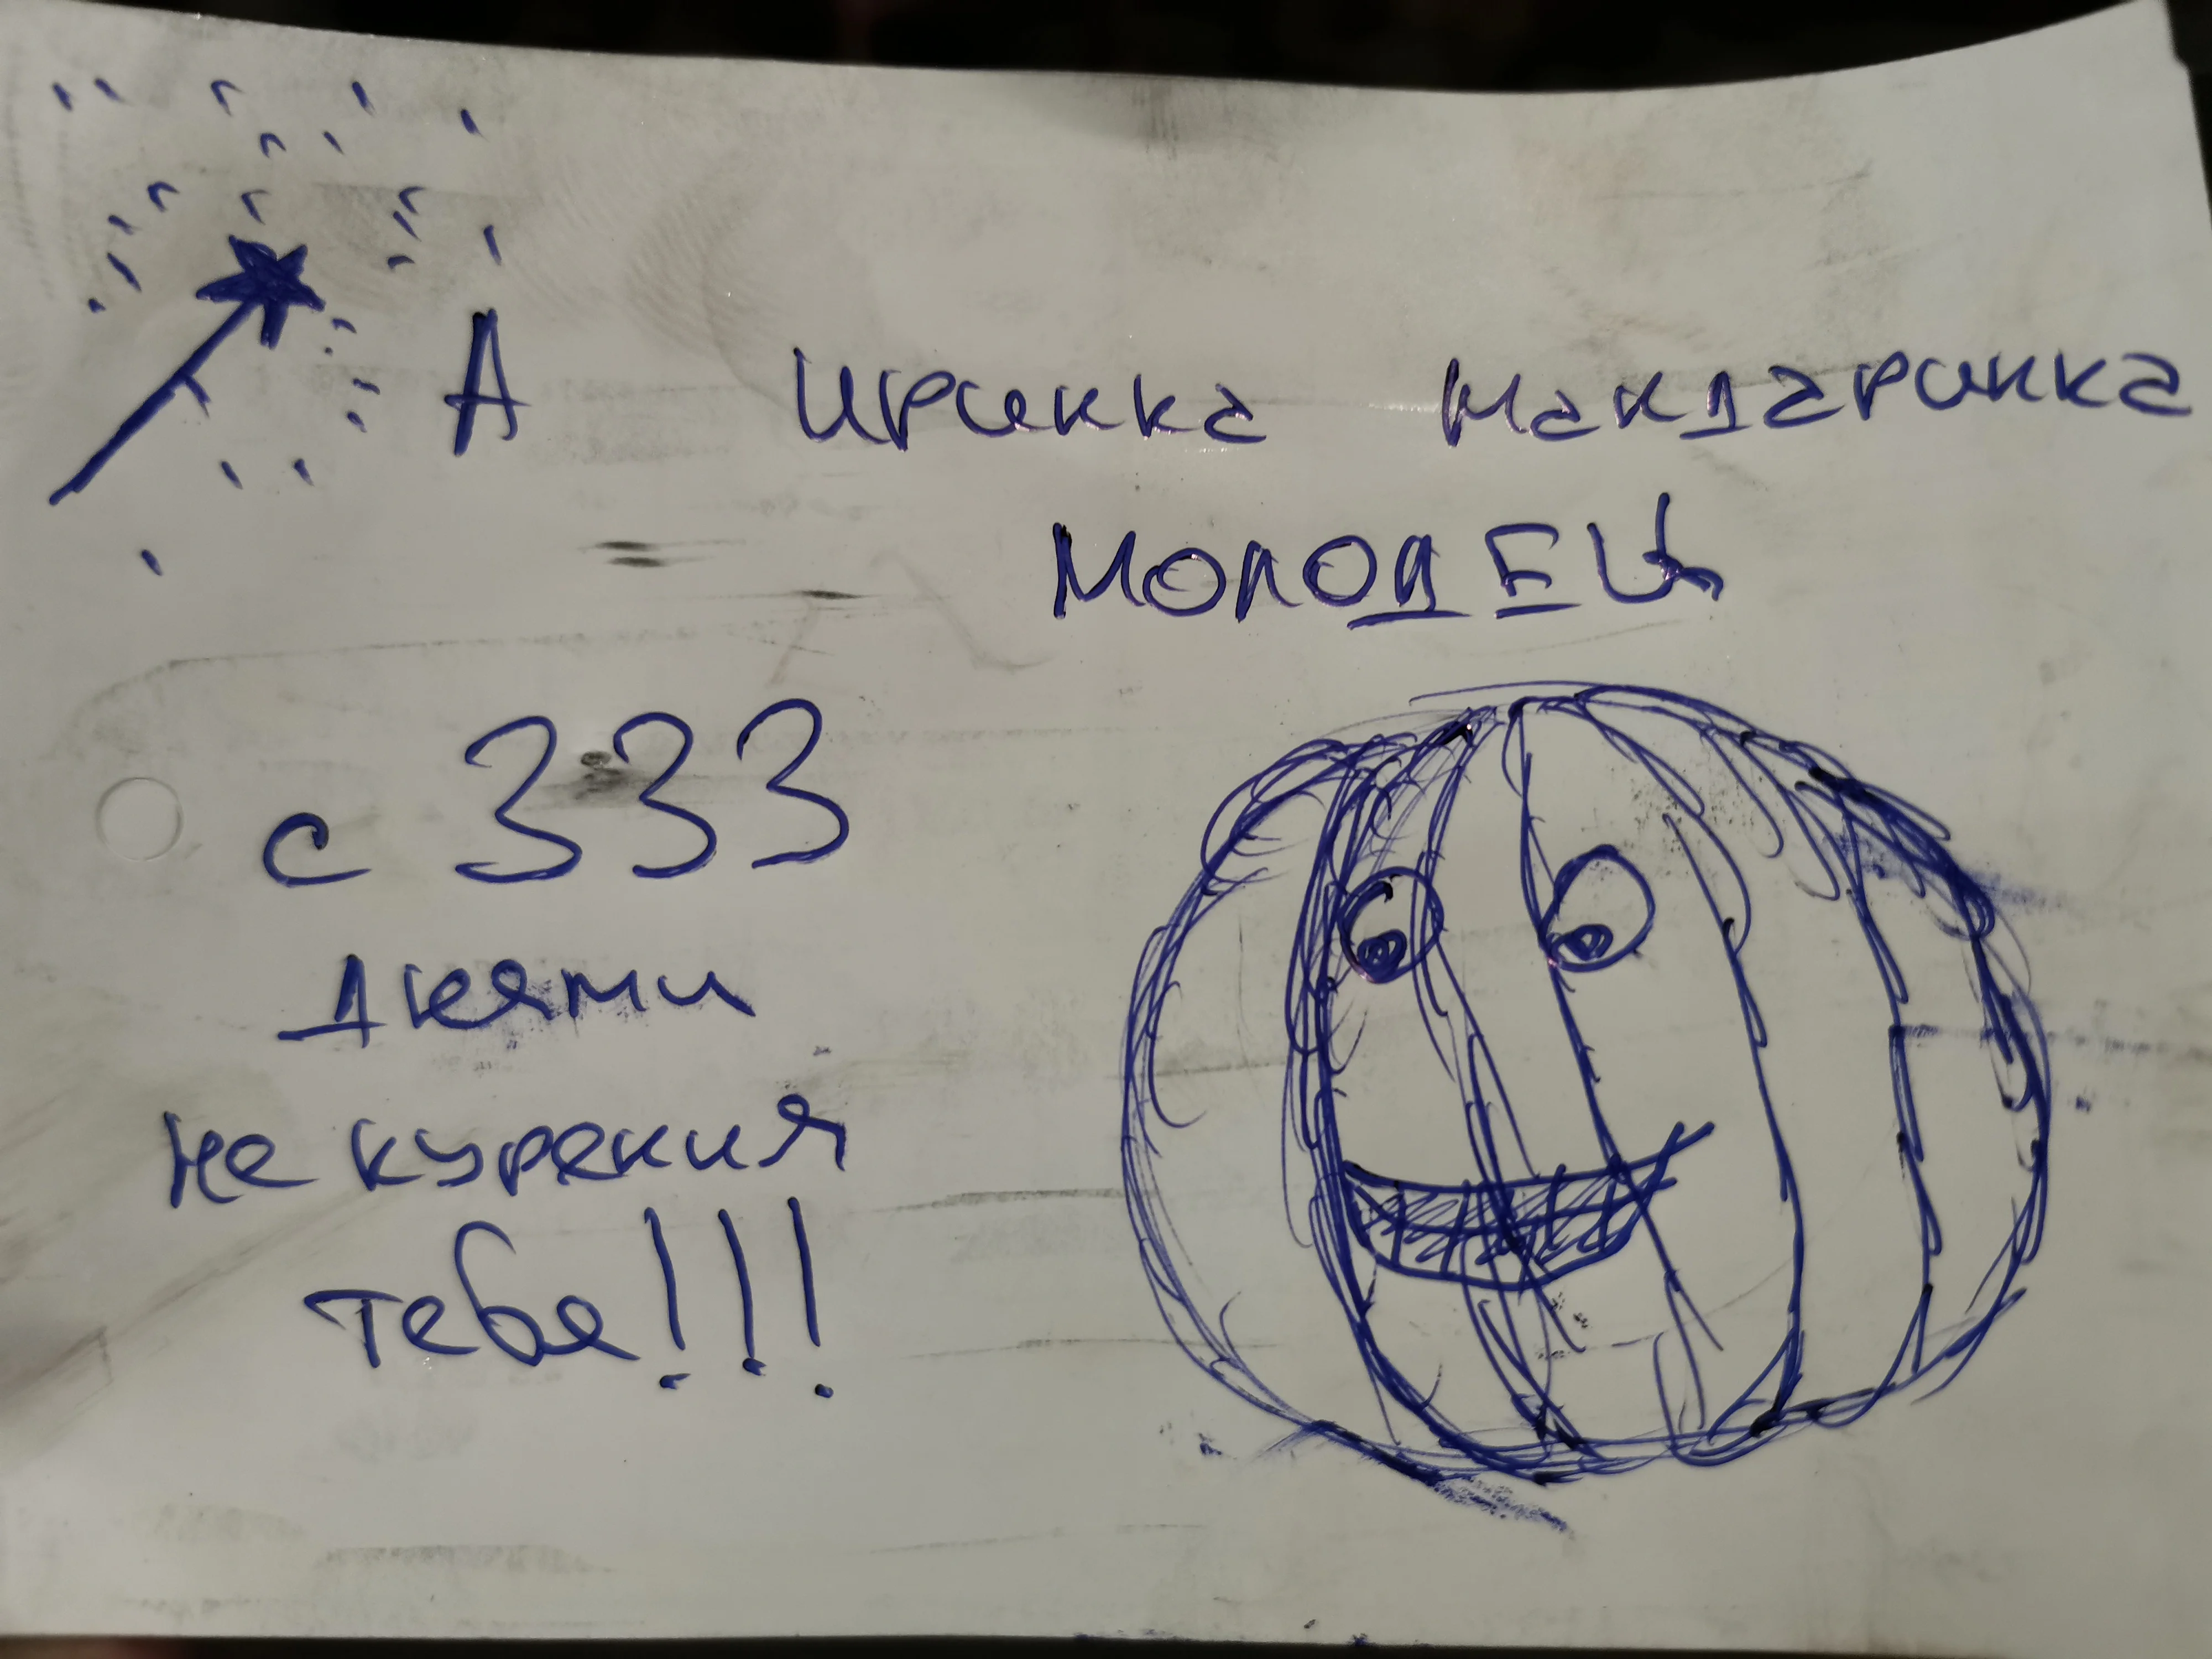 А Иринка мандаринка
МОЛОДЕЦ
с 333
днями
не курения
тебе!!!